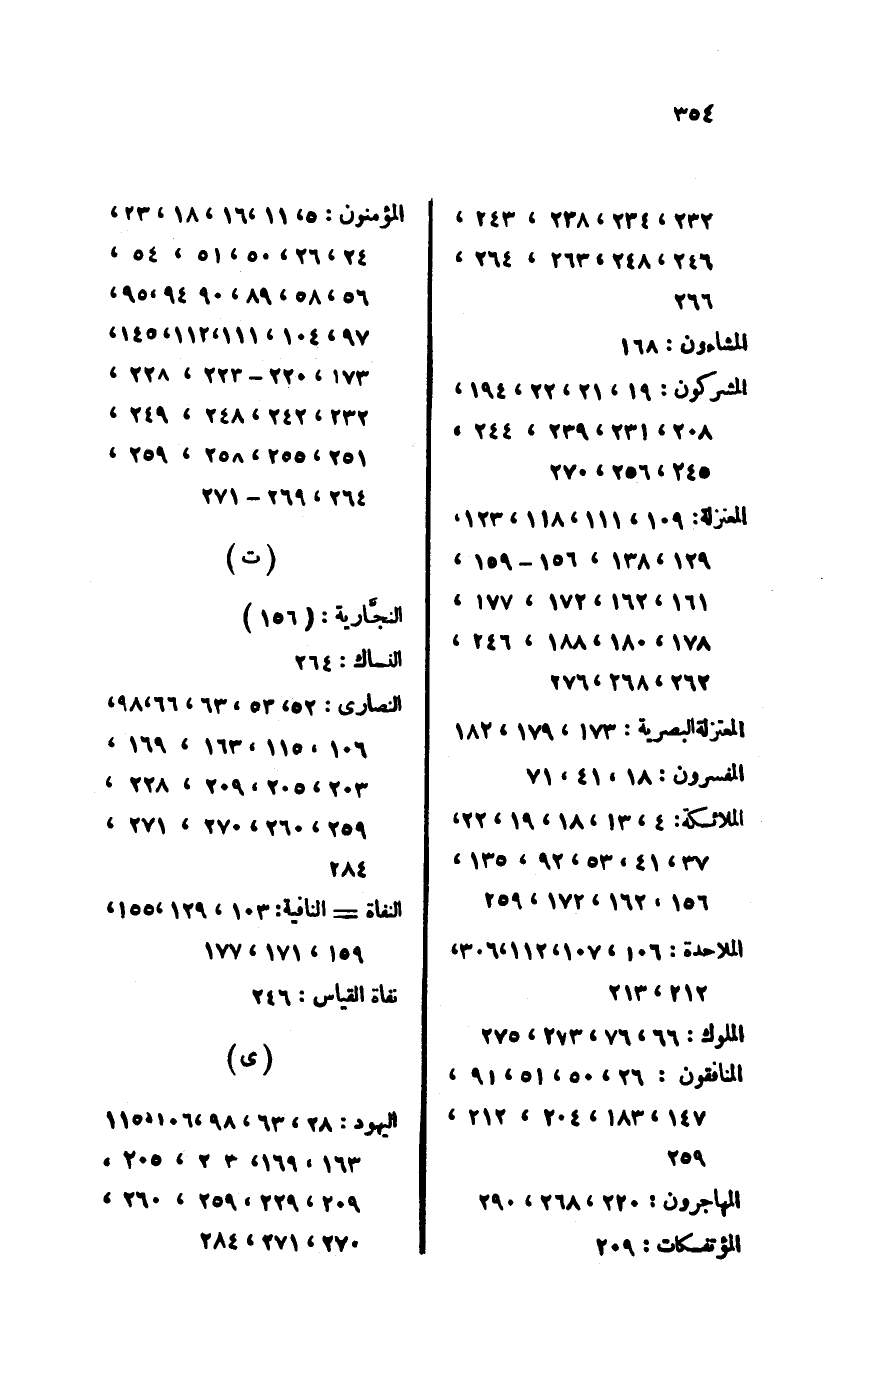 ٣٥٤
٢٣٢ ، ٢٣٤ ، ٢٣٨ ، ٢٤٣ ،
٢٤٦ ، ٢٤٨ ، ٢٦٣ ، ٢٦٤ ،
٢٦٦
المشاءون : ١٦٨
المشركون : ١٩ ، ٢١ ، ٢٢ ، ١٩٤ ،
٢٠٨ ، ٢٣١ ، ٢٣٩ ، ٢٤٤ ،
٢٤٥ ، ٢٥٦ ، ٢٧٠
المعتزلة : ١٠٩ ، ١١١ ، ١١٨ ، ١٢٣ ،
١٢٩ ، ١٣٨ ، ١٥٦ – ١٥٩ ،
١٦١ ، ١٦٢ ، ١٧٢ ، ١٧٧ ،
١٧٨ ، ١٨٠ ، ١٨٨ ، ٢٤٦ ،
٢٦٢ ، ٢٦٨ ، ٢٧٦
المعتزلة البصرية : ١٧٣ ، ١٧٩ ، ١٨٢
المفسرون : ١٨ ، ٤١ ، ٧١
الملائكة : ٤ ، ١٣ ، ١٨ ، ١٩ ، ٢٢ ،
٣٧ ، ٤١ ، ٥٣ ، ٩٢ ، ١٣٥ ،
١٥٦ ، ١٦٢ ، ١٧٢ ، ٢٥٩
الملاحدة : ١٠٦ ، ١٠٧ ، ١١٢ ، ٣٠٦ ،
٢١٢ ، ٢١٣
الملوك : ٦٦ ، ٧٦ ، ٢٧٣ ، ٢٧٥
المنافقون : ٢٦ ، ٥٠ ، ٥١ ، ٩١ ،
١٤٧ ، ١٨٣ ، ٢٠٤ ، ٢١٢ ،
٢٥٩
المهاجرون : ٢٢٠ ، ٢٦٨ ، ٢٩٠
المؤتفكات : ٢٠٩
المؤمنون : ٥ ، ١١ ، ١٦ ، ١٨ ، ٢٣ ،
٢٤ ، ٢٦ ، ٥٠ ، ٥١ ، ٥٤ ،
٥٦ ، ٥٨ ، ٨٩ ، ٩٠ ٩٤ ، ٩٥ ،
٩٧ ، ١٠٤ ، ١١١ ، ١١٢ ، ١٤٥ ،
١٧٣ ، ٢٢٠ – ٢٢٣ ، ٢٢٨ ،
٢٣٢ ، ٢٤٢ ، ٢٤٨ ، ٢٤٩ ،
٢٥١ ، ٢٥٥ ، ٢٥٨ ، ٢٥٩ ،
٢٦٤ ، ٢٦٩ – ٢٧١
( ت )
النجَّارية : ( ١٥٦ )
النساك : ٢٦٤
النصارى : ٥٢ ، ٥٣ ، ٦٣ ، ٦٦ ، ٩٨ ،
١٠٦ ، ١١٥ ، ١٦٣ ، ١٦٩ ،
٢٠٣ ، ٢٠٥ ، ٢٠٩ ، ٢٢٨ ،
٢٥٩ ، ٢٦٠ ، ٢٧٠ ، ٢٧١ ،
٢٨٤
النفاة = النافية : ١٠٣ ، ١٢٩ ، ١٥٥ ،
١٥٩ ، ١٧١ ، ١٧٧
نفاة القياس : ٢٤٦
( ى )
اليهود : ٢٨ ، ٦٣ ، ٩٨ ، ١٠٦ ، ١١٥
١٦٣ ، ١٦٩ ، ٢٠٥ ،
٢٠٩ ، ٢٢٩ ، ٢٥٩ ، ٢٦٠ ،
٢٧٠ ، ٢٧١ ، ٢٨٤